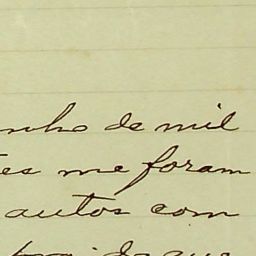 nho de mil
es me foram
autos com
de que